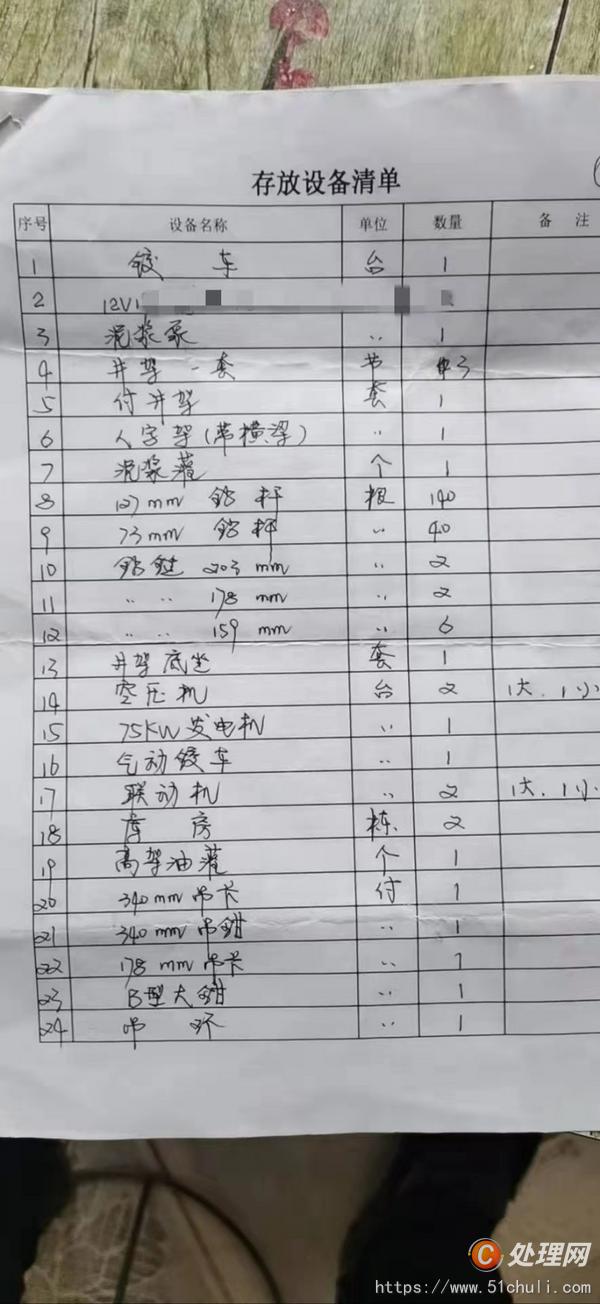 存放设备清单
序号 设备名称 单位 数量 备注
1 绞车 台 1
2 12V1
3 泥浆泵 〃 1
4 井架一套 节 3
5 付井架 套 1
6 人字架(带横梁) 〃 1
7 泥浆灌 个 1
8 127mm 钻杆 根 140
9 73mm 钻杆 〃 40
10 钻铤 203mm 〃 2
11 〃 〃 178mm 〃 2
12 〃 〃 159mm 〃 6
13 井架底坐 套 1
14 空压机 台 2 1大.1小
15 75KW发电机 〃 1
16 气动绞车 〃 1
17 联动机 〃 2 1大.1小
18 库房 栋 2
19 高架油灌 个 1
20 340mm吊卡 付 1
21 340mm吊钳 〃 1
22 178mm吊卡 〃 1
23 B型大钳 〃 1
24 吊环 〃 1
C 处理网
https://www.51chuli.com